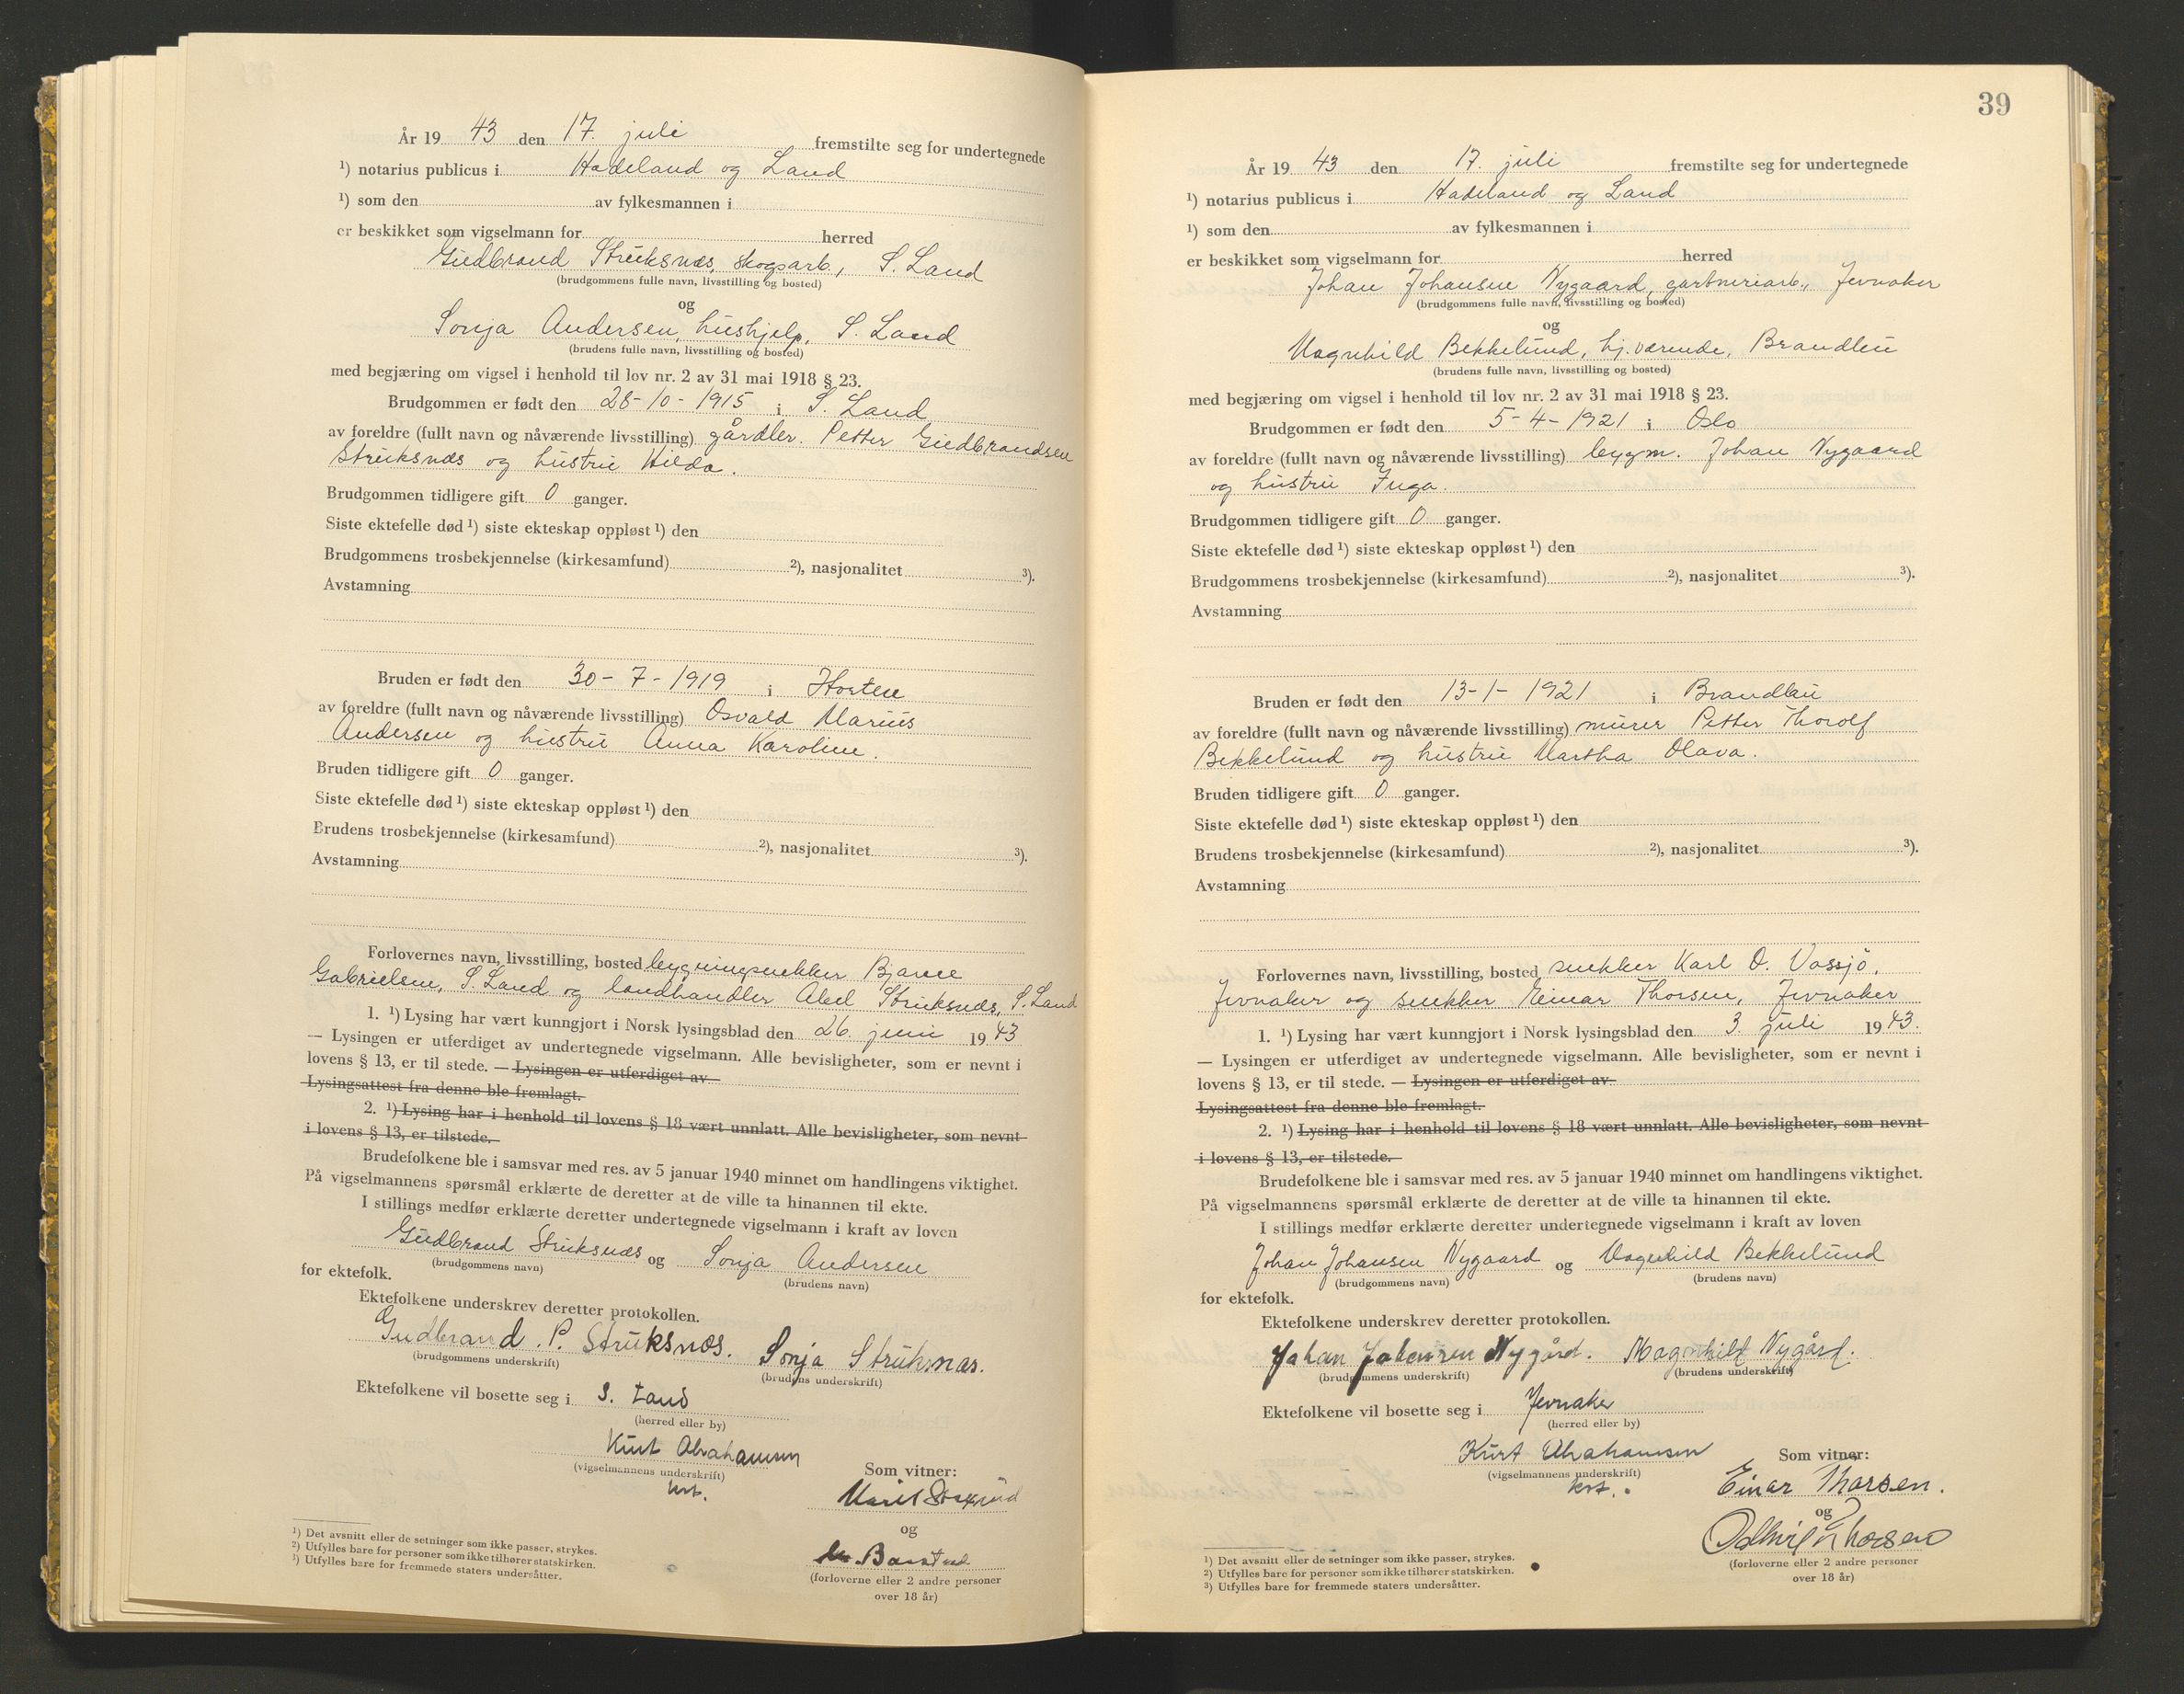 År 19 43 den 17. juli fremstilte seg for undertegnede
¹) notarius publicus i Hadeland og Land
¹) som den av fylkesmannen i
er beskikket som vigselmann for herred
Gudbrand Struksnæs, skogsarb., S. Land
(brudgommens fulle navn, livsstilling og bosted)
og
Sonja Andersen, hushjelp, S. Land
(brudens fulle navn, livsstilling og bosted)
med begjæring om vigsel i henhold til lov nr. 2 av 31 mai 1918 § 23.
Brudgommen er født den 28-10-1915 i S. Land
av foreldre (fullt navn og nåværende livsstilling) gårdbr. Petter Gudbrandsen
Struksnæs og hustru Hilda.
Brudgommen tidligere gift 0 ganger.
Siste ektefelle død ¹) siste ekteskap oppløst ¹) den
Brudgommens trosbekjennelse (kirkesamfund) ²), nasjonalitet ³).
Avstamning
Bruden er født den 30-7-1919 i Horten
av foreldre (fullt navn og nåværende livsstilling) Osvald Marius
Andersen og hustru Anna Karoline.
Bruden tidligere gift 0 ganger.
Siste ektefelle død ¹) siste ekteskap oppløst ¹) den
Brudens trosbekjennelse (kirkesamfund) ²), nasjonalitet ³).
Avstamning
Forlovernes navn, livsstilling, bosted bygningsnekker Bjarne
Gabrielsen, S. Land og landhandler Abel Struksnæs, S. Land
1. ¹) Lysing har vært kunngjort i Norsk lysingsblad den 26. juni 19 43
— Lysingen er utferdiget av undertegnede vigselmann. Alle bevisligheter, som er nevnt i
lovens § 13, er til stede. — Lysingen er utferdiget av
Lysingsattest fra denne ble fremlagt.
2. ¹) Lysing har i henhold til lovens § 18 vært unnlatt. Alle bevisligheter, som nevnt
i lovens § 13, er tilstede.
Brudefolkene ble i samsvar med res. av 5 januar 1940 minnet om handlingens viktighet.
På vigselmannens spørsmål erklærte de deretter at de ville ta hinannen til ekte.
I stillings medfør erklærte deretter undertegnede vigselmann i kraft av loven
Gudbrand Struksnæs og Sonja Andersen
(brudgommens navn) (brudens navn)
for ektefolk.
Ektefolkene underskrev deretter protokollen.
Gudbrand. P. Struksnæs. Sonja Struksnæs.
(brudgommens underskrift) (brudens underskrift)
Ektefolkene vil bosette seg i S. Land
(herred eller by)
Kurt Abrahamsen
(vigselmannens underskrift)
kst.
Som vitner:
Marit
og
(forloverne eller 2 andre personer
over 18 år)
¹) Det avsnitt eller de setninger som ikke passer, strykes.
²) Utfylles bare for personer som ikke tilhører statskirken.
³) Utfylles bare for fremmede staters undersåtter.
39
År 19 43 den 17. juli fremstilte seg for undertegnede
¹) notarius publicus i Hadeland og Land
¹) som den av fylkesmannen i
er beskikket som vigselmann for herred
Johan Johansen Nygaard, gartneriarb., Jevnaker
(brudgommens fulle navn, livsstilling og bosted)
og
Magnhild Bekkelund, hj.værende, Brandbu
(brudens fulle navn, livsstilling og bosted)
med begjæring om vigsel i henhold til lov nr. 2 av 31 mai 1918 § 23.
Brudgommen er født den 5-4-1921 i Oslo
av foreldre (fullt navn og nåværende livsstilling) bygm. Johan Nygaard
og hustru Inga.
Brudgommen tidligere gift 0 ganger.
Siste ektefelle død ¹) siste ekteskap oppløst ¹) den
Brudgommens trosbekjennelse (kirkesamfund) ²), nasjonalitet ³).
Avstamning
Bruden er født den 13-1-1921 i Brandbu
av foreldre (fullt navn og nåværende livsstilling) murer Petter Thorolf
Bekkelund og hustru Martha Olava.
Bruden tidligere gift 0 ganger.
Siste ektefelle død ¹) siste ekteskap oppløst ¹) den
Brudens trosbekjennelse (kirkesamfund) ²), nasjonalitet ³).
Avstamning
Forlovernes navn, livsstilling, bosted snekker Karl O. Vassjø,
Jevnaker og snekker Einar Thorsen, Jevnaker
1. ¹) Lysing har vært kunngjort i Norsk lysingsblad den 3. juli 19 43.
— Lysingen er utferdiget av undertegnede vigselmann. Alle bevisligheter, som er nevnt i
lovens § 13, er til stede. — Lysingen er utferdiget av
Lysingsattest fra denne ble fremlagt.
2. ¹) Lysing har i henhold til lovens § 18 vært unnlatt. Alle bevisligheter, som nevnt
i lovens § 13, er tilstede.
Brudefolkene ble i samsvar med res. av 5 januar 1940 minnet om handlingens viktighet.
På vigselmannens spørsmål erklærte de deretter at de ville ta hinannen til ekte.
I stillings medfør erklærte deretter undertegnede vigselmann i kraft av loven
Johan Johansen Nygaard og Magnhild Bekkelund
(brudgommens navn) (brudens navn)
for ektefolk.
Ektefolkene underskrev deretter protokollen.
Johan Johansen Nygård. Magnhild Nygård.
(brudgommens underskrift) (brudens underskrift)
Ektefolkene vil bosette seg i Jevnaker
(herred eller by)
Kurt Abrahamsen
(vigselmannens underskrift)
kst.
Som vitner:
Einar Thorsen.
og
Thorsen
(forloverne eller 2 andre personer
over 18 år)
¹) Det avsnitt eller de setninger som ikke passer, strykes.
²) Utfylles bare for personer som ikke tilhører statskirken.
³) Utfylles bare for fremmede staters undersåtter.